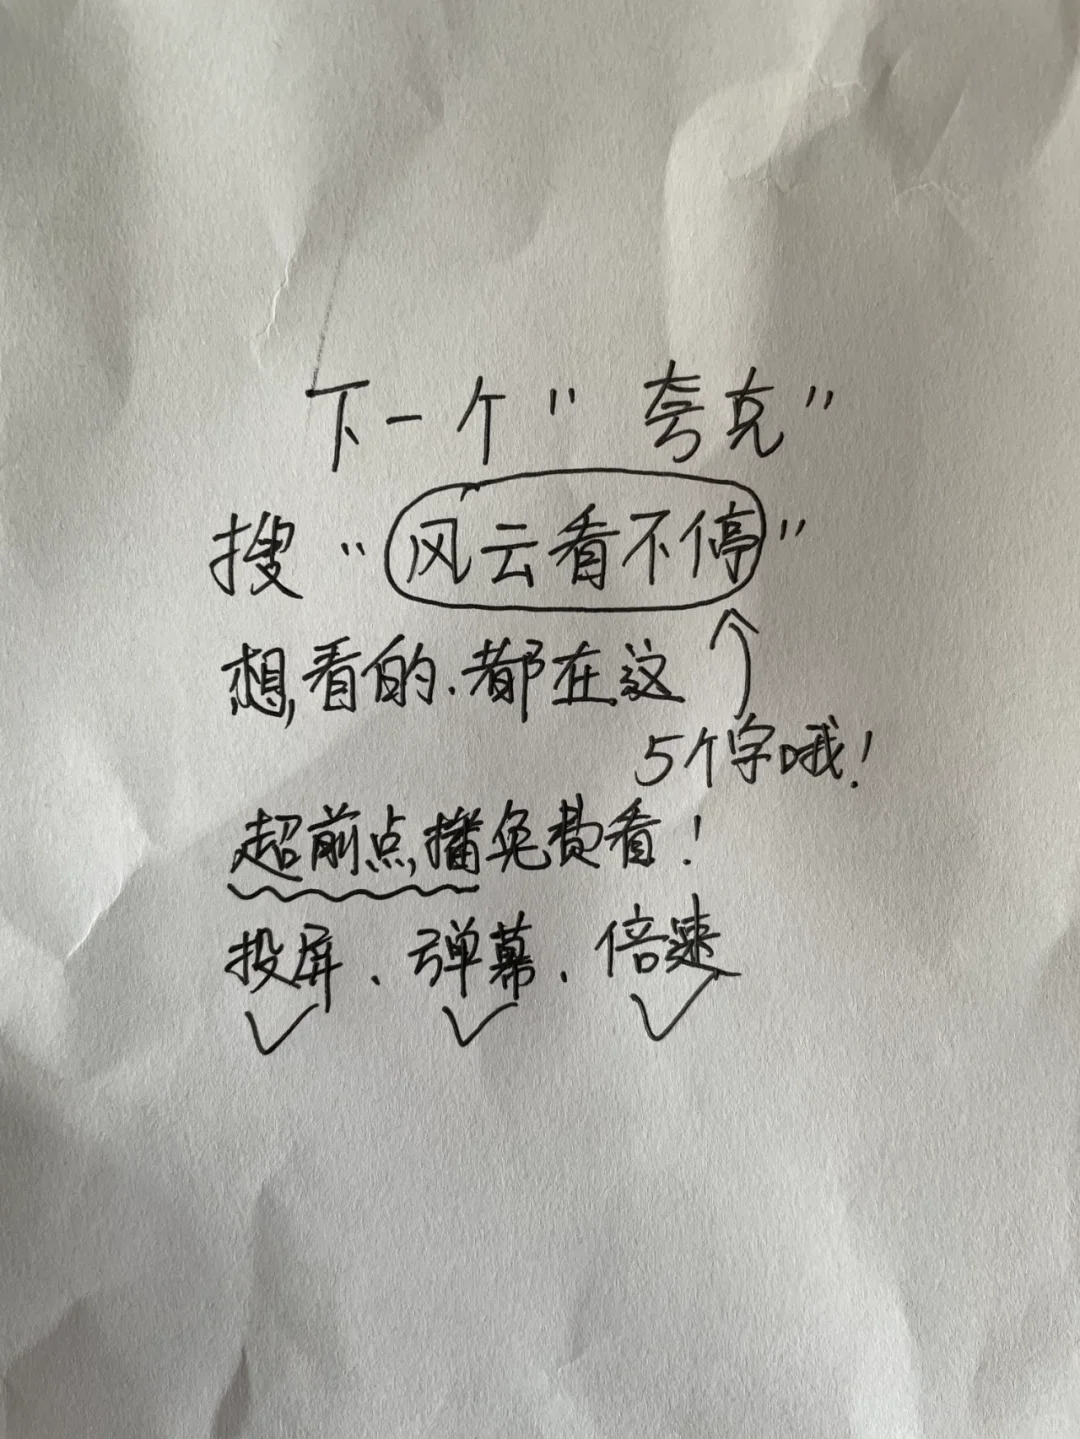 下一个"夸克"
搜"风云看不停"
想看的.都在这
5个字哦!
超前点播免费看!
投屏、弹幕、倍速